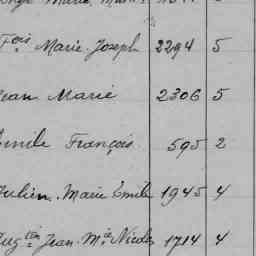 Fois Marie Joseph 2294 5
Jean Marie 2306 5
Emile François 595 2
Julien Marie Emile 1945 4
Augtin Jean Mie Nicolas 1714 4